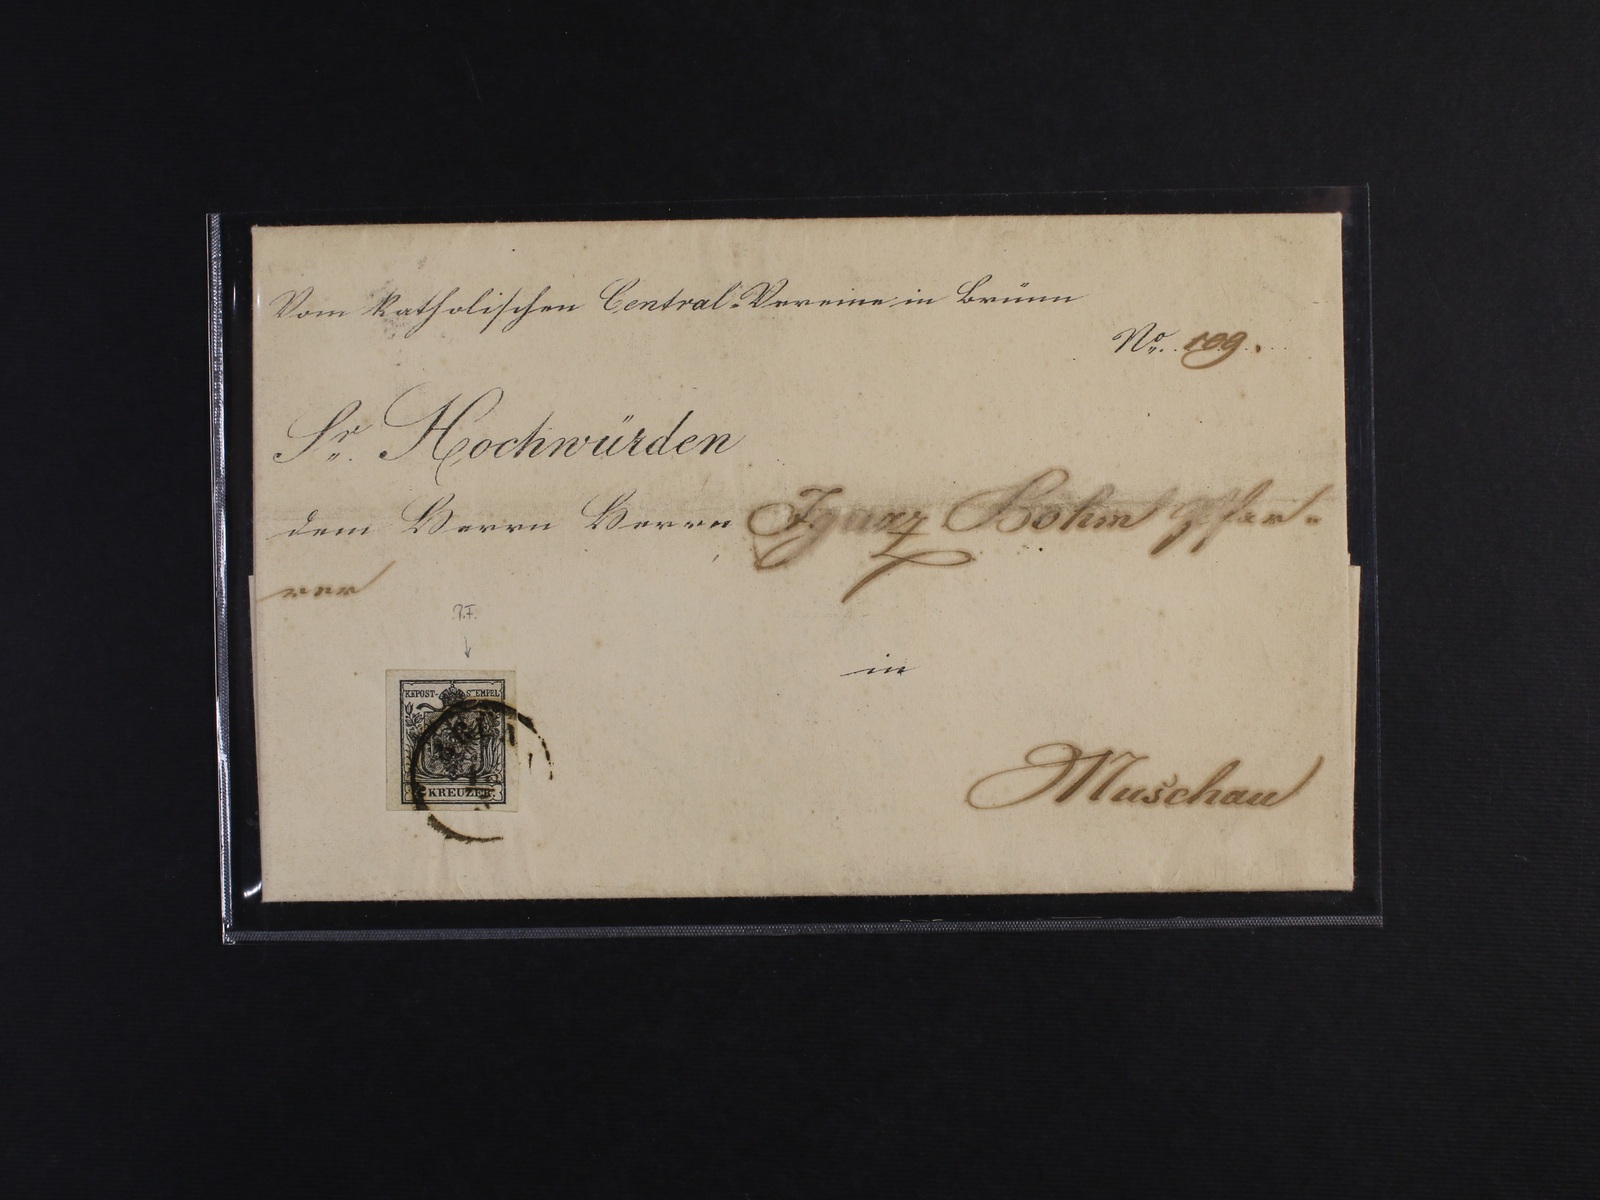 Vom katholischen Central-Vereine in Brünn
No. 109.
Sr. Hochwürden
dem Herrn Herrn Ignaz Böhm Pfar-
rer
P.F.
in
KKPOST-STEMPEL
2 KREUZER
Muschau